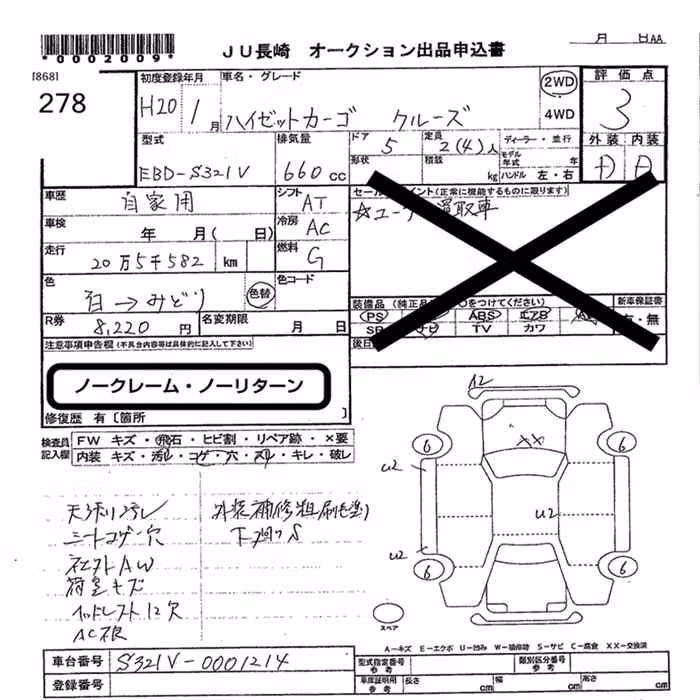 *0002009*
JU長崎 オークション出品申込書
月 日AA
[868]
278
初度登録年月 車名・グレード 2WD 4WD 評価点
H20 1月 ハイゼットカーゴ クルーズ 3
型式 排気量 ドア 定員 ディーラー・並行 外装 内装
EBD-S321V 660cc 5 2(4)人 モデル年式 年
形状 積載 kg ハンドル 左・右
車歴 自家用 シフト AT
セールスポイント(正常に機能するものに限ります)
☆ユーザー買取車
車検 年 月(日) 冷房 AC
走行 20万5千582 km 燃料 G
色 白→みどり 色替 色コード
装備品 (純正品 ○をつけてください) 新車保証書
PS ABS エアB AW 有・無
SR ナビ TV カワ
R券 8,220円 名変期限 月 日
後日
注意事項申告欄(不具合内容等は具体的に記入して下さい)
ノークレーム・ノーリターン
修復歴 有〔箇所 〕
検査員記入欄 FW キズ・飛石・ヒビ割・リペア跡・×要
内装 キズ・汚れ・コゲ・穴・スレ・キレ・破レ
天張り汚レ
シートコゲ・穴
社外AW
荷室キズ
AC
外装補修粗刷毛塗り
下廻りS
12
6 6
XX
U2
U2
U2
6 6
スペア
A-キズ E-エクボ U-凹み W-補修跡 S-サビ C-腐食 XX-交換済
車台番号 S321V-0001214
登録番号
型式指定番号 参考 類別区分番号 参考
車庫証明用 参考 長さ cm 幅 cm 高さ cm